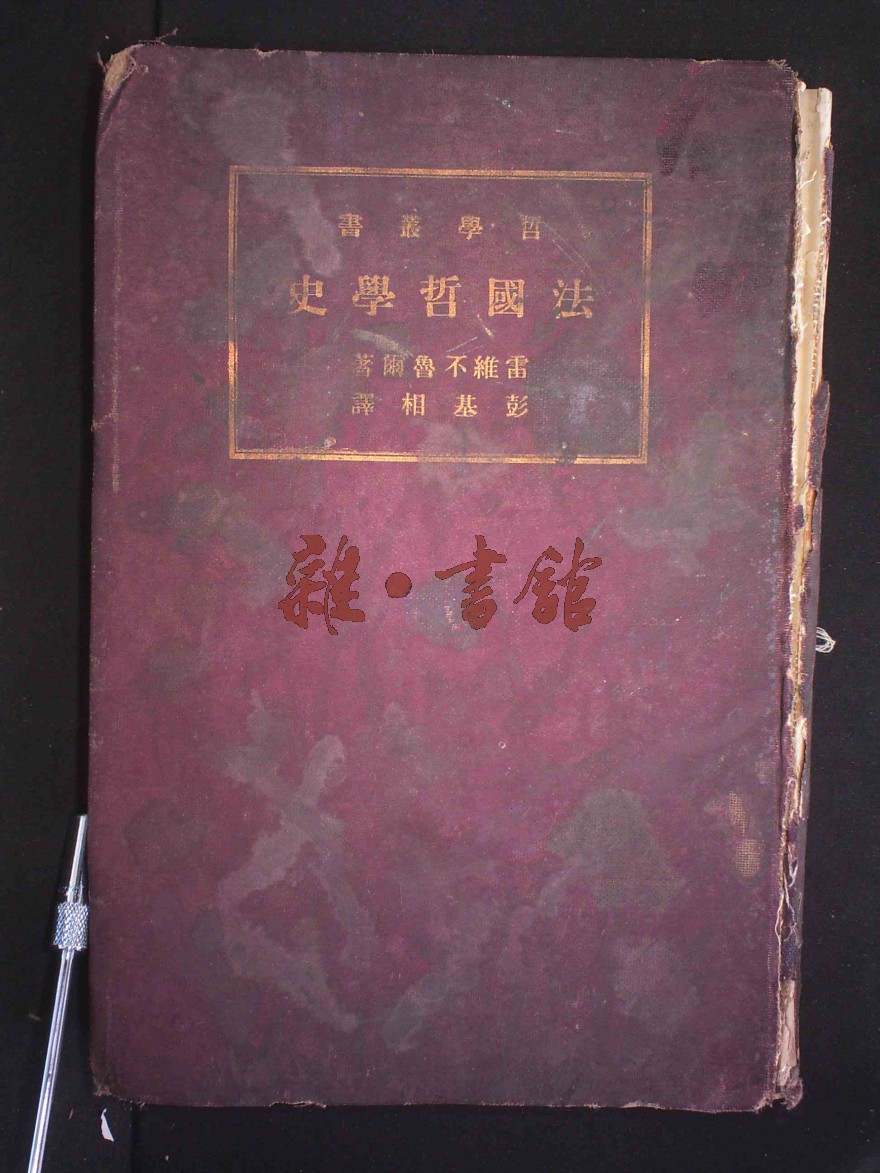 哲學叢書
法國哲學史
雷維不魯爾著
彭基相譯
雜·書館